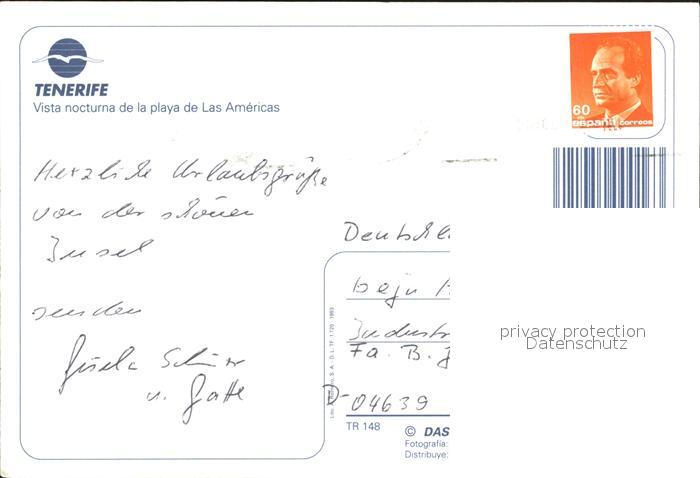 TENERIFE
Vista nocturna de la playa de Las Américas
60
españa correos
Herzliche Urlaubsgrüße
von der schönen
Insel
senden
Gisela
u. Gatte
Deutschl
Industr
Fa. B.
D-04639
TR 148
© DAS
Fotografía:
Distribuye:
privacy protection
Datenschutz